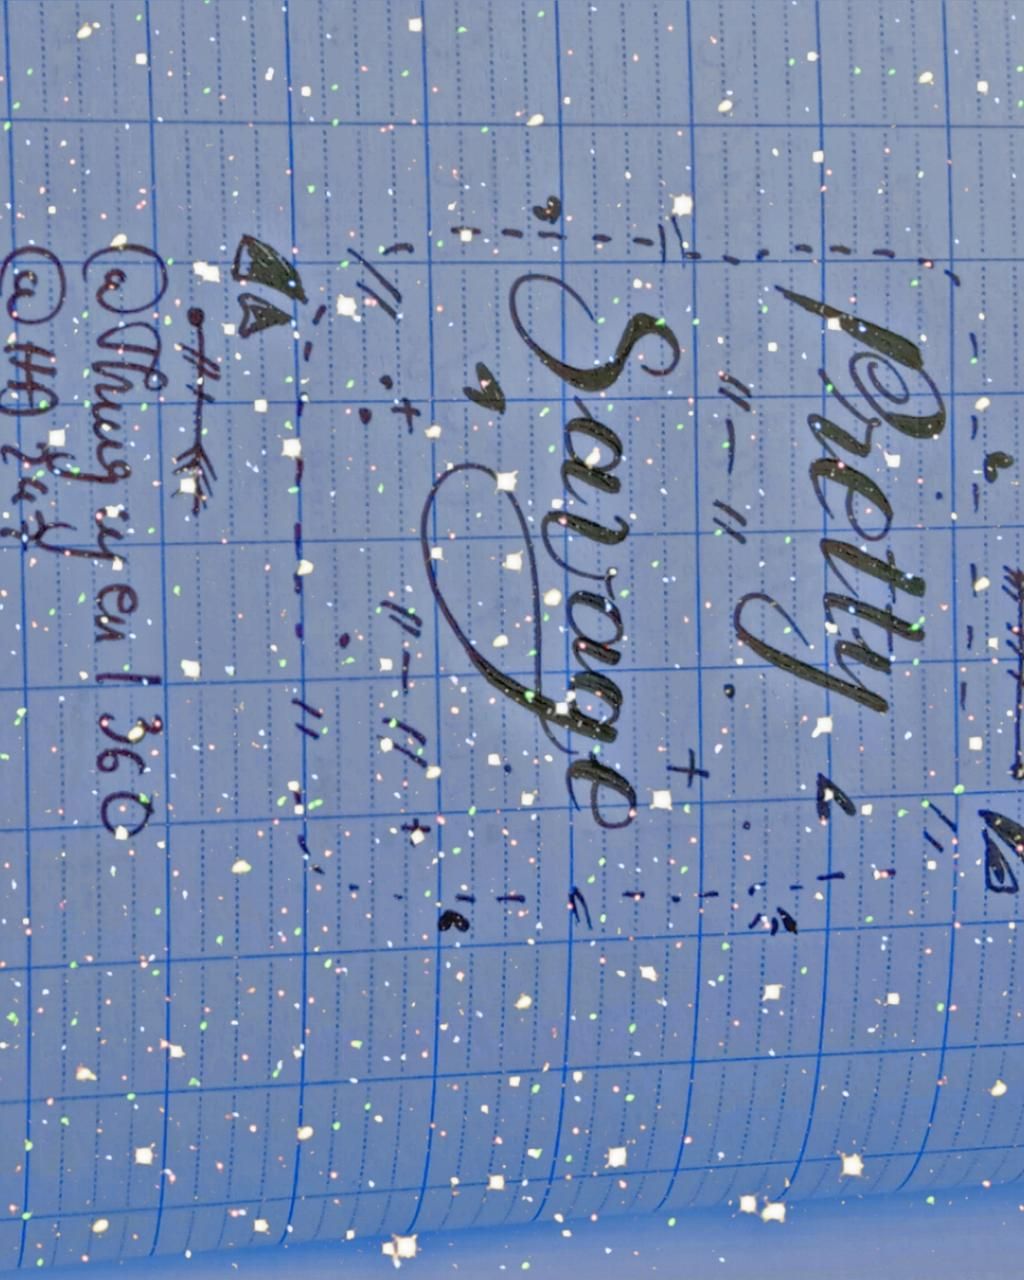 Pretty
Savage
@Thuy yen 1360